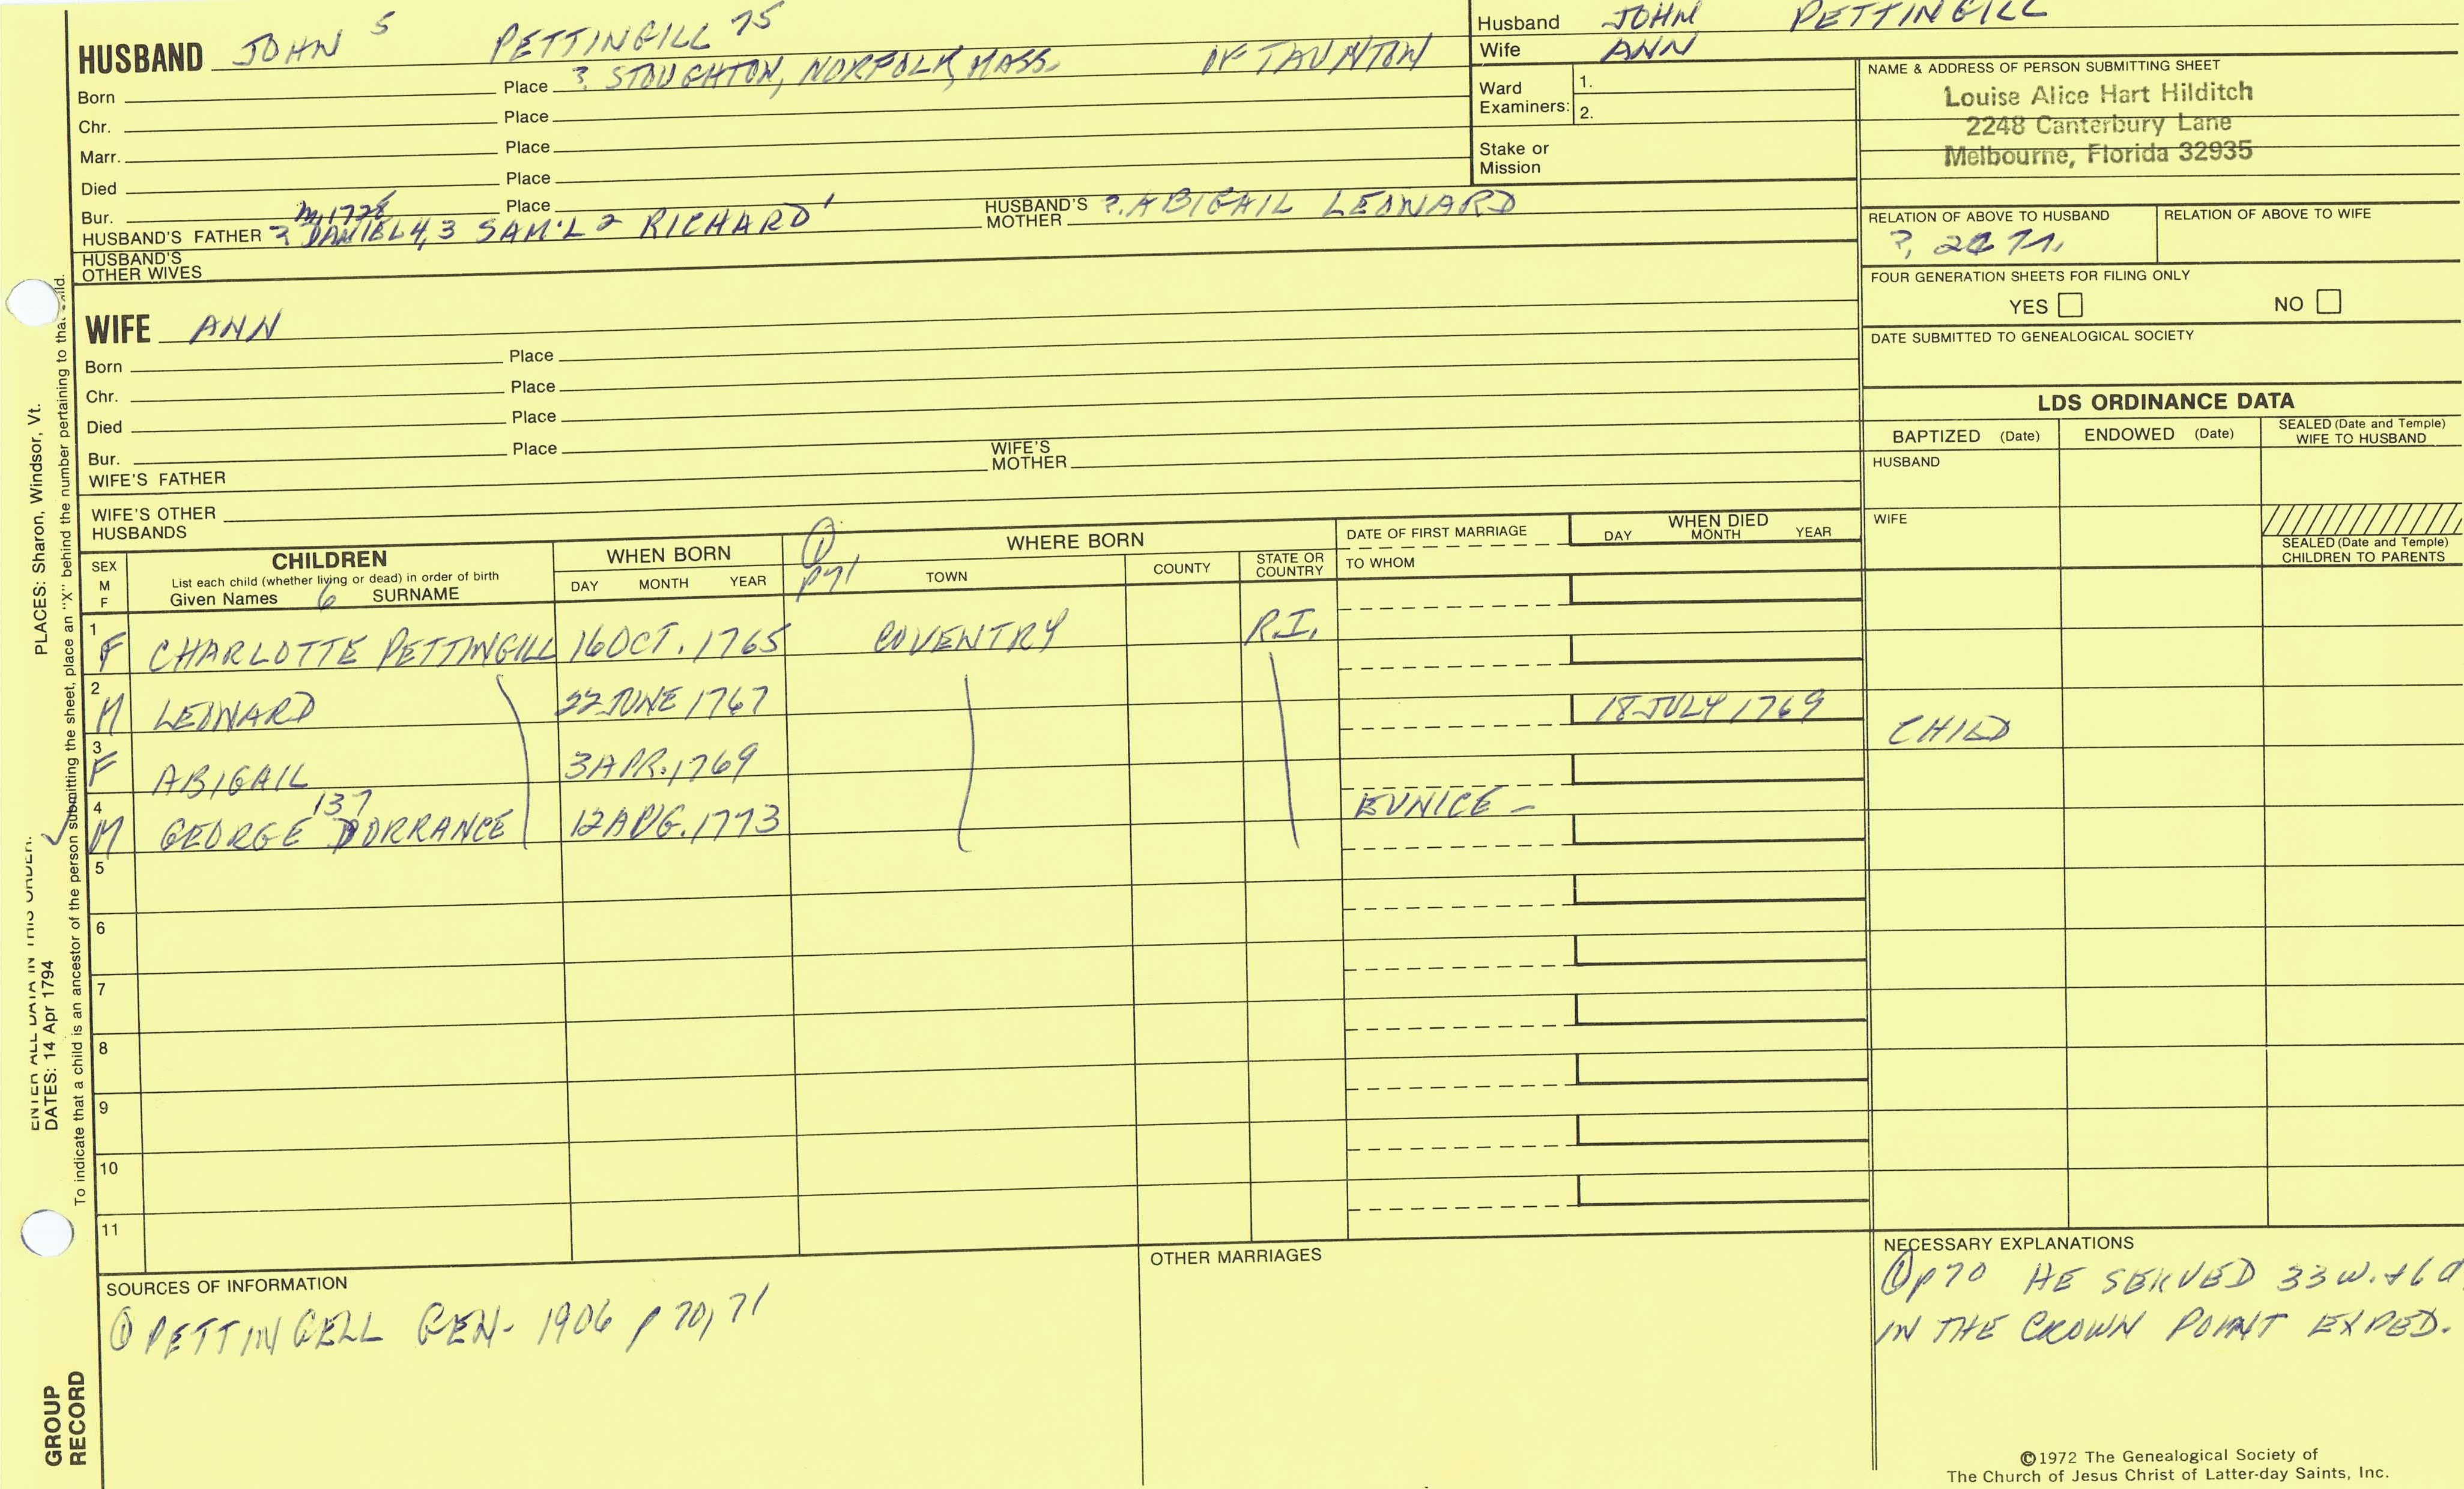 HUSBAND JOHN 5 PETTINGILL 75
Born Place ? STOUGHTON, NORFOLK, MASS. OF TAUNTON
Chr. Place
Marr. Place
Died Place
Bur. Place
HUSBAND'S FATHER ? DANIEL 4, 3 SAM'L 2 RICHARD 1 HUSBAND'S MOTHER ? ABIGAIL LEONARD
m, 1728
HUSBAND'S OTHER WIVES
WIFE ANN
Born Place
Chr. Place
Died Place
Bur. Place
WIFE'S FATHER WIFE'S MOTHER
WIFE'S OTHER HUSBANDS
Husband JOHN PETTINGILL
Wife ANN
Ward 1.
Examiners: 2.
Stake or
Mission
NAME & ADDRESS OF PERSON SUBMITTING SHEET
Louise Alice Hart Hilditch
2248 Canterbury Lane
Melbourne, Florida 32935
RELATION OF ABOVE TO HUSBAND RELATION OF ABOVE TO WIFE
FOUR GENERATION SHEETS FOR FILING ONLY
YES NO
DATE SUBMITTED TO GENEALOGICAL SOCIETY
LDS ORDINANCE DATA
BAPTIZED (Date) ENDOWED (Date) SEALED (Date and Temple) WIFE TO HUSBAND
HUSBAND
WIFE
SEALED (Date and Temple) CHILDREN TO PARENTS
SEX M F
CHILDREN
List each child (whether living or dead) in order of birth
Given Names 6 SURNAME
WHEN BORN
DAY MONTH YEAR
① p71
WHERE BORN
TOWN COUNTY STATE OR COUNTRY
DATE OF FIRST MARRIAGE
TO WHOM
WHEN DIED
DAY MONTH YEAR
1 F CHARLOTTE PETTINGILL 16 OCT. 1765 COVENTRY R.I.
2 M LEONARD 22 JUNE 1767 18 JULY 1769 CHILD
3 F ABIGAIL 3 APR. 1769
137
4 M GEORGE DORRANCE 12 AUG. 1773 EUNICE –
5
6
7
8
9
10
11
SOURCES OF INFORMATION
① PETTINGELL GEN- 1906 p 70, 71
OTHER MARRIAGES
NECESSARY EXPLANATIONS
① p70 HE SERVED 33 w. + 6 d
IN THE CROWN POINT EXPED.
©1972 The Genealogical Society of
The Church of Jesus Christ of Latter-day Saints, Inc.
GROUP
RECORD
ENTER ALL DATA IN THIS ORDER:
DATES: 14 Apr 1794 PLACES: Sharon, Windsor, Vt.
To indicate that a child is an ancestor of the person submitting the sheet, place an "X" behind the number pertaining to that child.